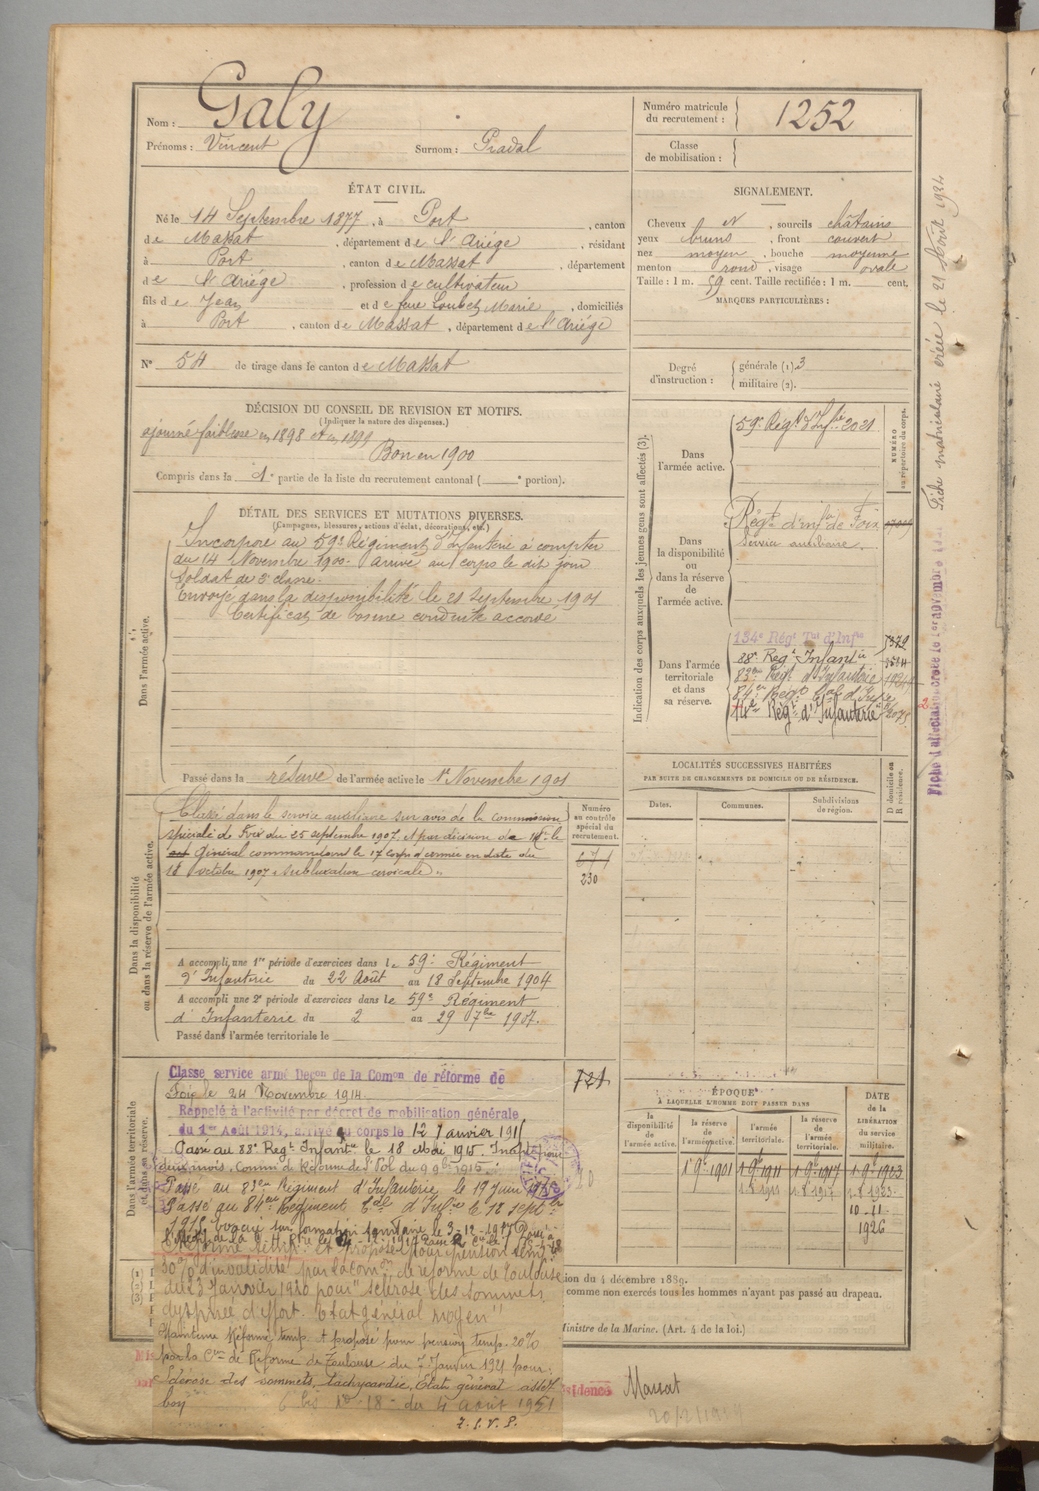 Nom : Galy
Prénoms : Vincent Surnom : Pradal
Numéro matricule du recrutement : 1252
Classe de mobilisation :
ÉTAT CIVIL.
Né le 14 Septembre 1877, à Port, canton
de Massat, département de l'Ariége, résidant
à Port, canton de Massat, département
de l'Ariége, profession de cultivateur
fils de Jean et de feue Loubet Marie, domiciliés
à Port, canton de Massat, département de l'Ariége
N° 54 de tirage dans le canton de Massat
SIGNALEMENT.
Cheveux et N, sourcils châtains
yeux bruns, front couvert
nez moyen, bouche moyenne
menton rond, visage ovale
Taille : 1 m. 59 cent. Taille rectifiée : 1 m. cent,
MARQUES PARTICULIÈRES :
Degré d'instruction : générale (1). 3
militaire (2).
DÉCISION DU CONSEIL DE REVISION ET MOTIFS.
(Indiquer la nature des dispenses.)
ajourné faiblesse en 1898 et en 1899
Bon en 1900
Compris dans la 1e partie de la liste du recrutement cantonal ( e portion).
DÉTAIL DES SERVICES ET MUTATIONS DIVERSES.
(Campagnes, blessures, actions d'éclat, décorations, etc.)
Dans l'armée active.
Incorporé au 59e Régiment d'Infanterie à compter
du 14 Novembre 1900. arrivé au corps le dit jour
Soldat de 2e classe.
Envoyé dans la disponibilité le 21 Septembre 1901
Certificat de bonne conduite accordé
Passé dans la réserve de l'armée active le 1er Novembre 1901
Indication des corps auxquels les jeunes gens sont affectés (3).
NUMÉRO au répertoire du corps.
Dans l'armée active.
59e Régt d'Infie 2021
Dans la disponibilité ou dans la réserve de l'armée active.
Régt d'infie de Foix
Service auxiliaire.
Dans l'armée territoriale et dans sa réserve.
134e Régt Tal d'Infie
88e Regt Infantie
83eme Régt d'Infanterie
84e Regt Cal d'Infie
14e Régt d'Infanterie
Fiche matriculaire créée le 21 Août 1924
LOCALITÉS SUCCESSIVES HABITÉES
PAR SUITE DE CHANGEMENTS DE DOMICILE OU DE RÉSIDENCE.
D domicile ou R résidence.
Dates. Communes. Subdivisions de région.
Dans la disponibilité ou dans la réserve de l'armée active.
Classé dans le service auxiliaire sur avis de la Commission
spéciale de Foix du 25 septembre 1907 et par décision de M. le
Général commandant le 17e corps d'armée en date du
18 octobre 1907 "subluxation cervicale".
Numéro au contrôle spécial du recrutement.
230
A accompli une 1re période d'exercices dans le 59e Régiment
d'Infanterie du 22 Août au 18 Septembre 1904
A accompli une 2e période d'exercices dans le 59e Régiment
d'Infanterie du 2 au 29 7bre 1907.
Passé dans l'armée territoriale le
Dans l'armée territoriale et dans sa réserve.
Classé service armé Deçon de la Comon de réforme de
Foix le 24 Novembre 1914
Rappelé à l'activité par décret de mobilisation générale
du 1er Août 1914, arrivé au corps le 12 Janvier 1915
Passé au 88e Regt Infantie le 18 Mai 1915. Inapte pour
deux mois. Comon de Réforme de St Pol du 9 9bre 1915
Passé au 83eme Régiment d'Infanterie le 19 Juin
Passé au 84eme Regiment Cal d'Infie le 12 septbre
Réformé temp. et proposé pour pension temp.
30% d'invalidité par la Comon de réforme de Toulouse
du 23 Janvier 1920 pour "sclérose des sommets,
dyspnée d'effort. Etat général moyen"
Maintenu Réformé temp. et proposé pour pension temp. 20%
par la Con de Réforme de Toulouse du 7 Janvier 1921 pour :
Sclérose des sommets, tachycardie, Etat général assez
bon
ÉPOQUE
A LAQUELLE L'HOMME DOIT PASSER DANS
la disponibilité de l'armée active. la réserve de l'armée active. l'armée territoriale. la réserve de l'armée territoriale.
DATE de la LIBÉRATION du service militaire.
1er 9bre 1901 1er 9bre 1911 1er 9bre 1917 1er 9bre 1923
10-11
1926
ion du 4 décembre 1889.
comme non exercés tous les hommes n'ayant pas passé au drapeau.
Ministre de la Marine. (Art. 4 de la loi.)
Massat